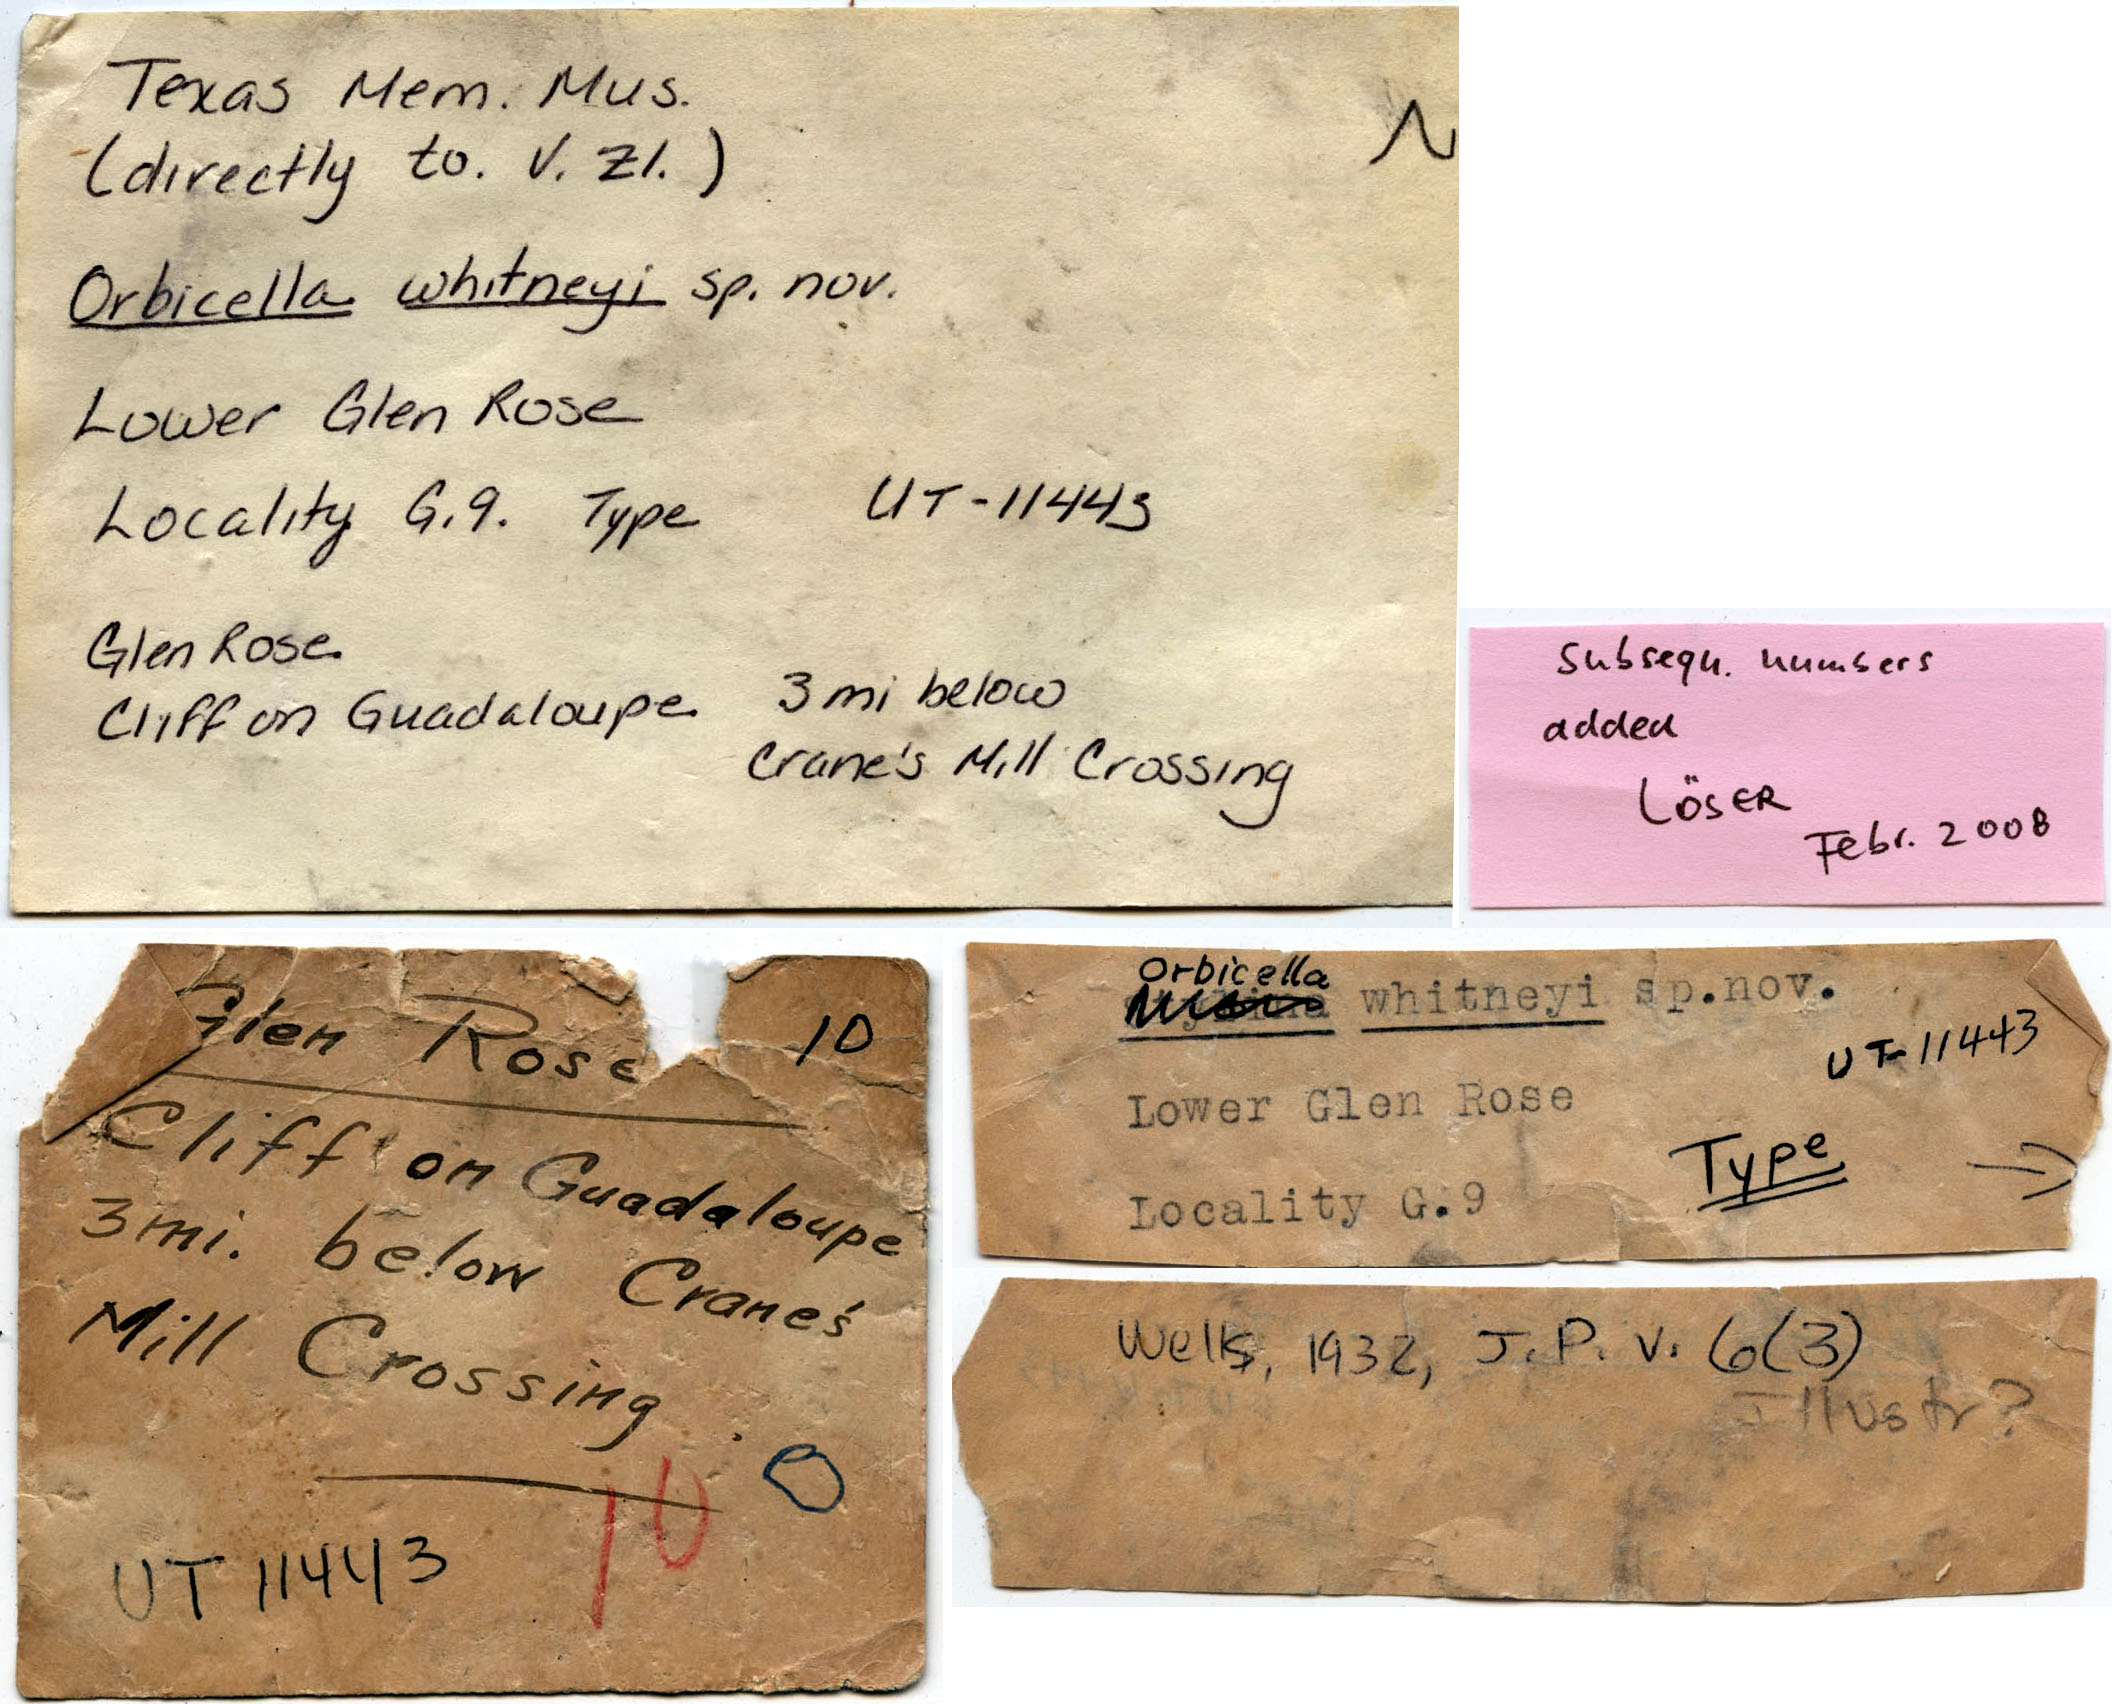 Texas Mem. Mus.
(directly to. V. Zl.)
N
Orbicella whitneyi sp. nov.
Lower Glen Rose
Locality G.9. Type UT-11443
Glen Rose
Cliff on Guadaloupe 3 mi below
Crane's Mill Crossing
Subsequ. numbers
added
LÖSER
Febr. 2008
Glen Rose 10
Cliff on Guadaloupe
3 mi. below Crane's
Mill Crossing
10
UT 11443
Orbicella
whitneyi sp.nov.
UT-11443
Lower Glen Rose
Type
Locality G.9
Wells, 1932, J.P. v. 6(3)
Illustr?